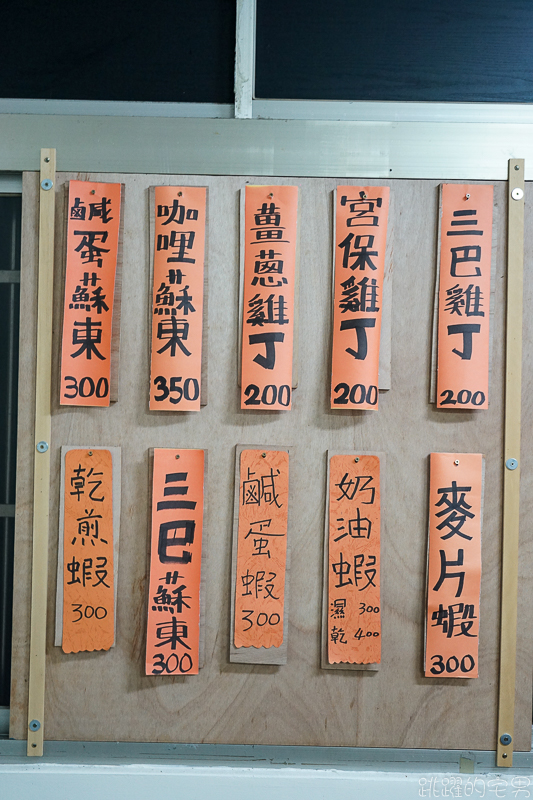 鹹蛋蘇東 300
咖哩蘇東 350
薑蔥雞丁 200
宮保雞丁 200
三巴雞丁 200
乾煎蝦 300
三巴蘇東 300
鹹蛋蝦 300
奶油蝦
濕 300
乾 400
麥片蝦 300
跳躍的宅男